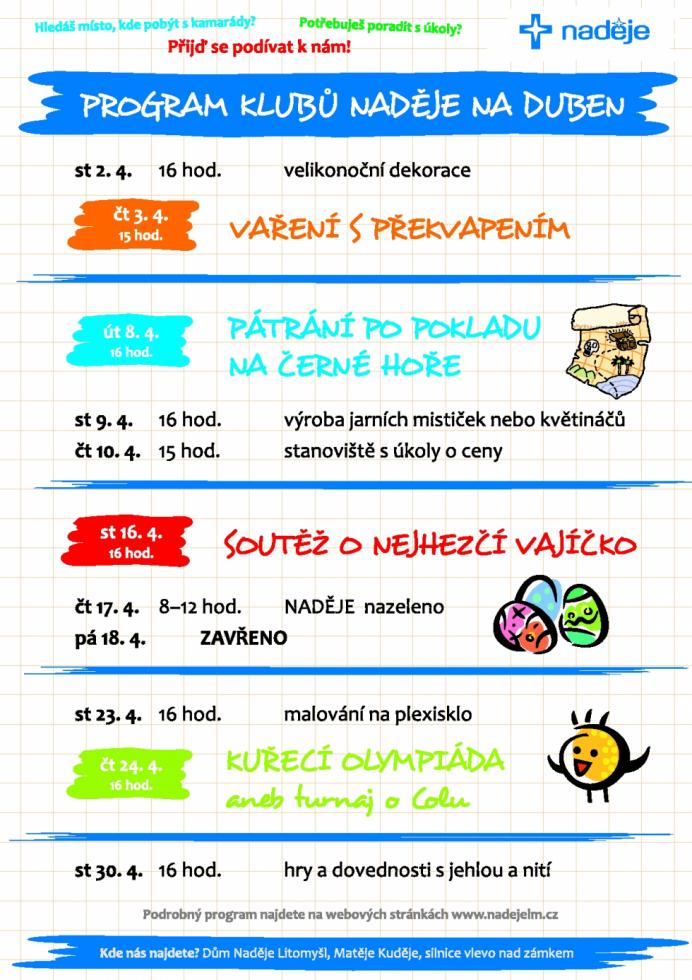 Hledáš místo, kde pobýt s kamarády?
Potřebuješ poradit s úkoly?
Přijď se podívat k nám!
naděje
PROGRAM KLUBŮ NADĚJE NA DUBEN
st 2. 4. 16 hod. velikonoční dekorace
čt 3. 4.
15 hod.
VAŘENÍ S PŘEKVAPENÍM
út 8. 4.
16 hod.
PÁTRÁNÍ PO POKLADU
NA ČERNÉ HOŘE
st 9. 4. 16 hod. výroba jarních mističek nebo květináčů
čt 10. 4. 15 hod. stanoviště s úkoly o ceny
st 16. 4.
16 hod.
SOUTĚŽ O NEJHEZČÍ VAJÍČKO
čt 17. 4. 8–12 hod. NADĚJE nazeleno
pá 18. 4. ZAVŘENO
st 23. 4. 16 hod. malování na plexisklo
čt 24. 4.
16 hod.
KUŘECÍ OLYMPIÁDA
aneb turnaj o Colu
st 30. 4. 16 hod. hry a dovednosti s jehlou a nití
Podrobný program najdete na webových stránkách www.nadejelm.cz
Kde nás najdete? Dům Naděje Litomyšl, Matěje Kuděje, silnice vlevo nad zámkem